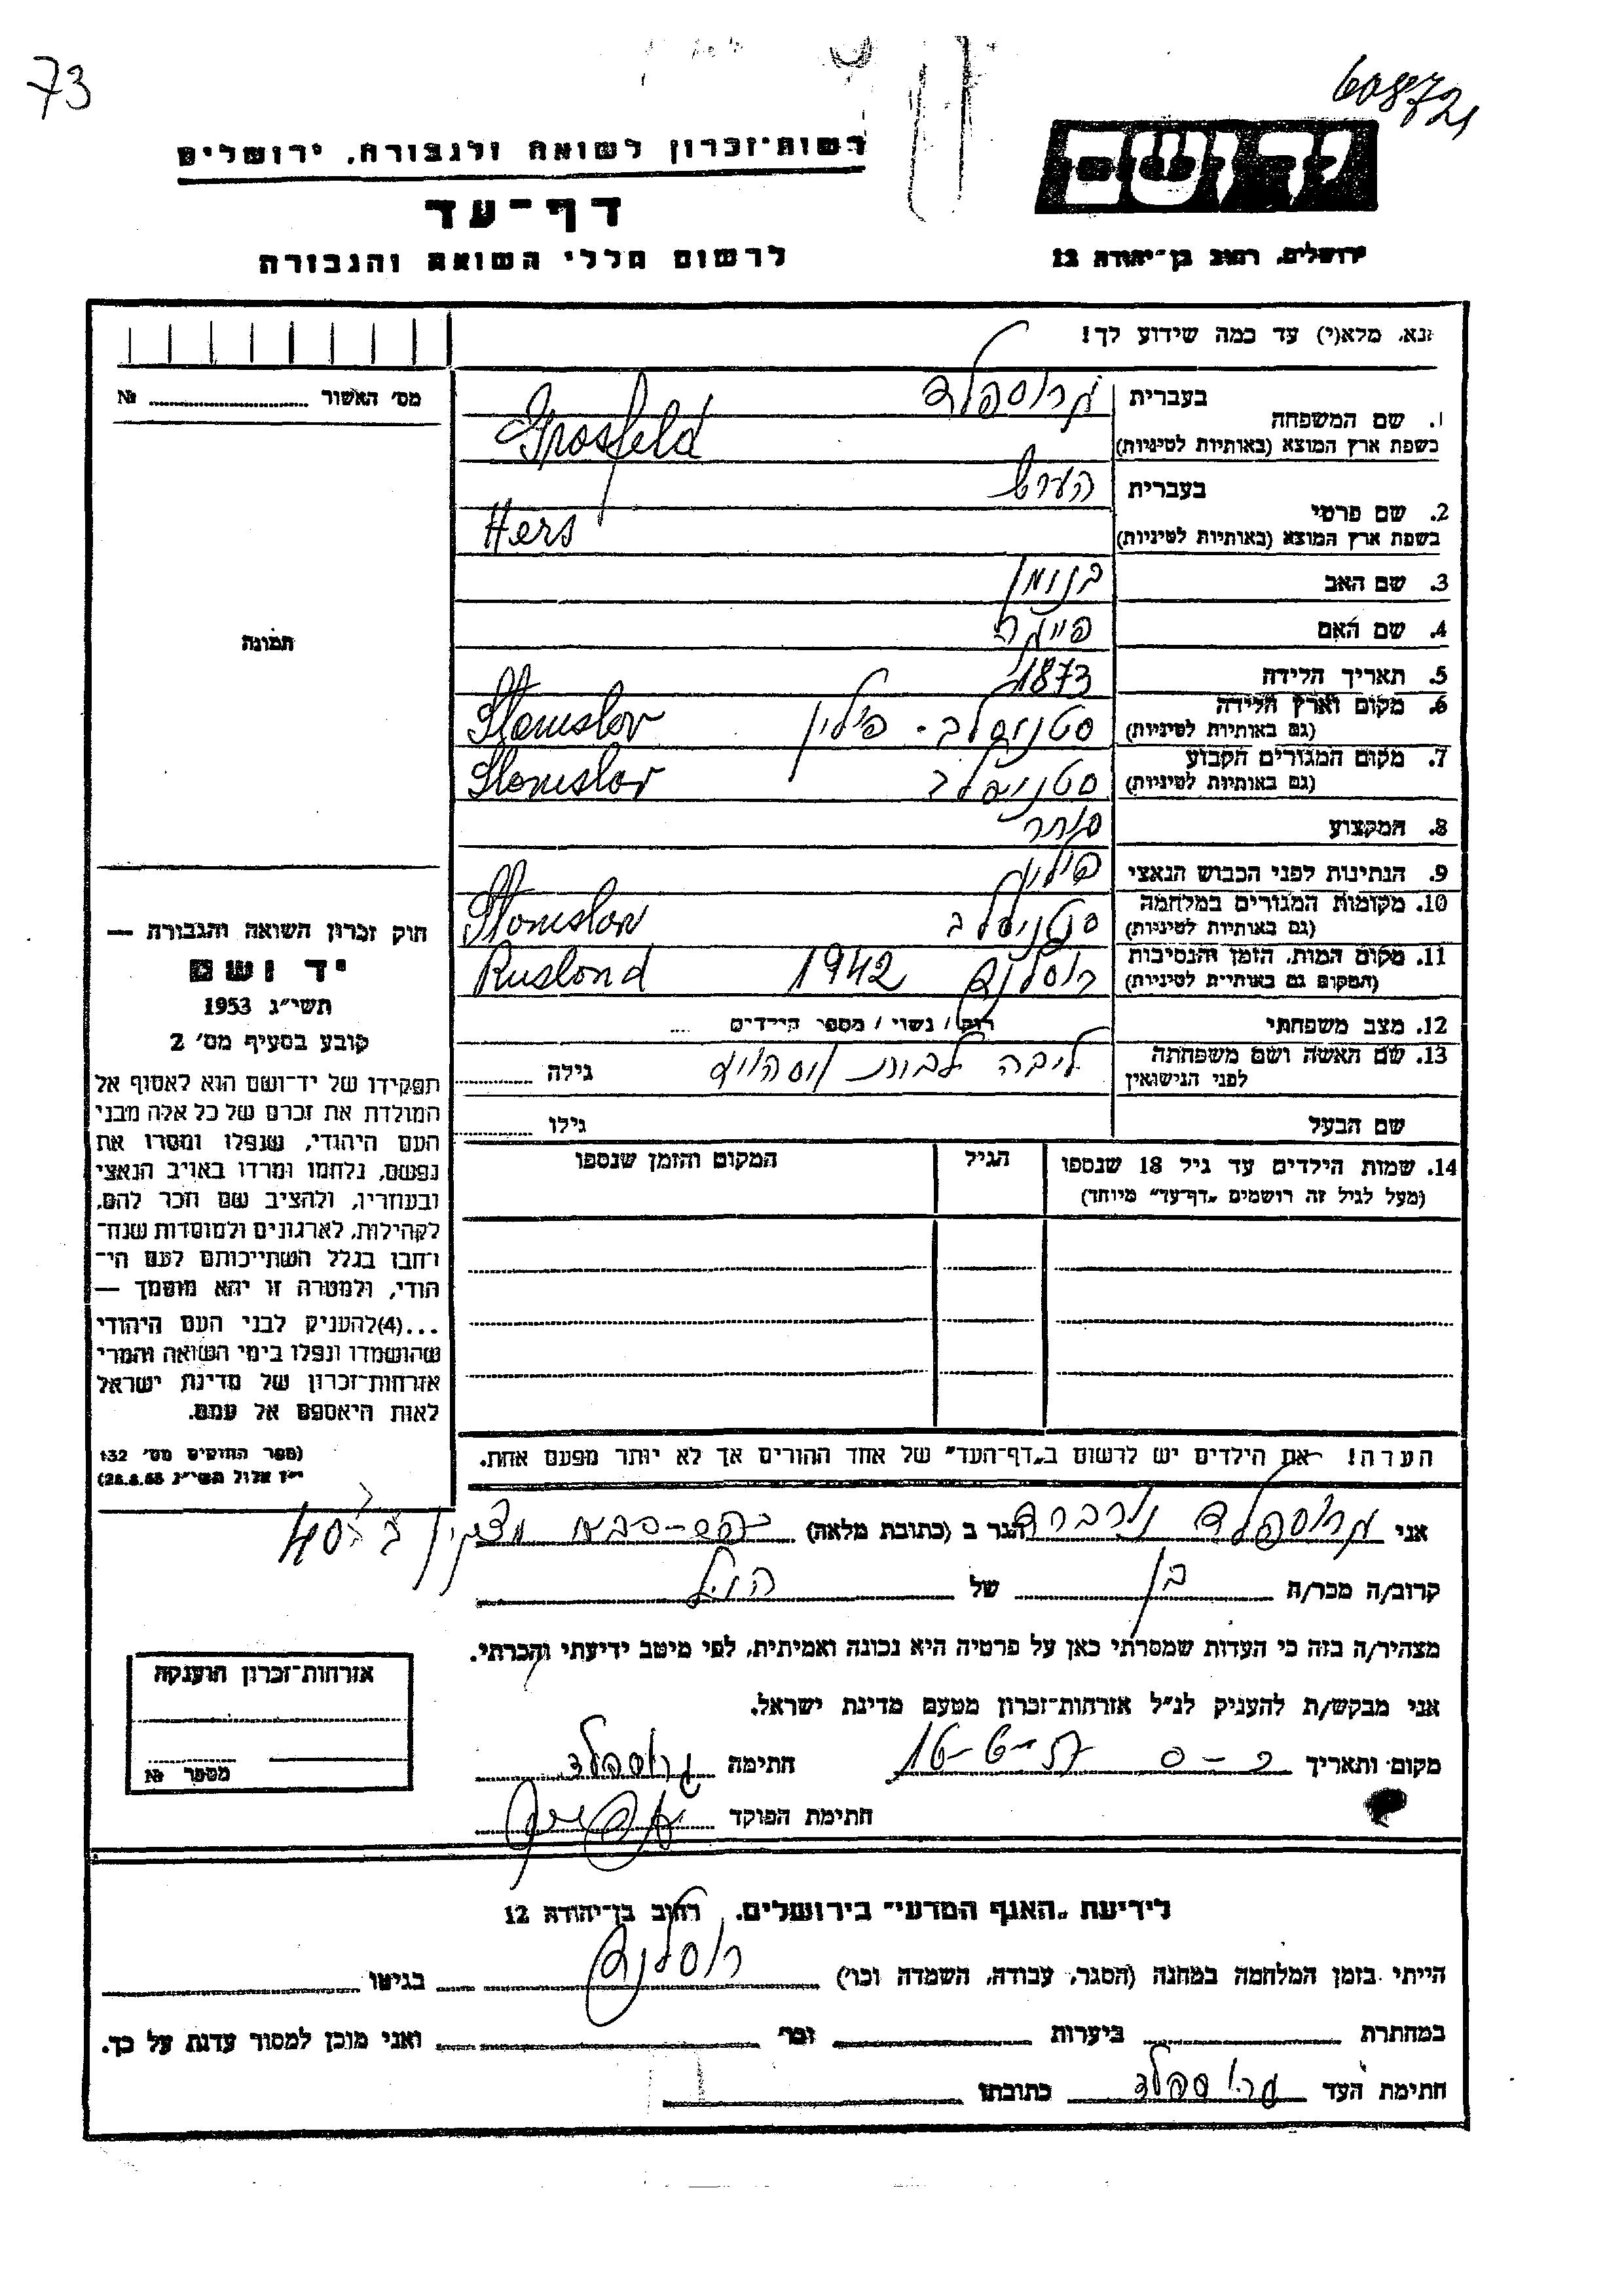 73
608721
יד ושם
רשות־זכרון לשואה ולגבורה, ירושלים
דף־עד
לרשום חללי השואה והגבורה
ירושלים, רחוב בן־יהודה 12
נא, מלא(י) עד כמה שידוע לך!
מס' האשור № 
1. שם המשפחה בעברית גרוספלד
בשפת ארץ המוצא (באותיות לטיניות) Grosfeld
2. שם פרטי בעברית הערש
בשפת ארץ המוצא (באותיות לטיניות) Hers
3. שם האב
4. שם האם פייגה
5. תאריך הלידה 1873
6. מקום וארץ הלידה סטניסלב - פולין Stanislav
(גם באותיות לטיניות)
7. מקום המגורים הקבוע סטניסלב Stanislav
(גם באותיות לטיניות)
8. המקצוע סוחר
9. הנתינות לפני הכבוש הנאצי פולין
10. מקומות המגורים במלחמה סטניסלב Stanislav
(גם באותיות לטיניות)
11. מקום המות, הזמן והנסיבות רוסלנד 1942 Rusland
(המקום גם באותיות לטיניות)
12. מצב משפחתי רוק / נשוי / מספר הילדים
13. שם האשה ושם משפחתה ליבה לבית גילה
לפני הנישואין
שם הבעל גילו
14. שמות הילדים עד גיל 18 שנספו הגיל המקום והזמן שנספו
(מעל לגיל זה רושמים "דף־עד" מיוחד)
הערה! את הילדים יש לרשום ב"דף־העד" של אחד ההורים אך לא יותר מפעם אחת.
תמונה
חוק זכרון השואה והגבורה —
יד ושם
תשי"ג 1953
קובע בסעיף מס' 2
תפקידו של יד־ושם הוא לאסוף אל
המולדת את זכרם של כל אלה מבני
העם היהודי, שנפלו ומסרו את
נפשם, נלחמו ומרדו באויב הנאצי
ובעוזריו, ולהציב שם וזכר להם,
לקהילות, לארגונים ולמוסדות שנח־
רבו בגלל השתייכותם לעם הי־
הודי, ולמטרה זו יהא מוסמך —
...(4) להעניק לבני העם היהודי
שהושמדו ונפלו בימי השואה והמרי
אזרחות־זכרון של מדינת ישראל
לאות היאספם אל עמם.
(ספר החוקים מס' 132
י"ז אלול תשי"ג
אני גרוספלד הגר ב (כתובת מלאה) כפר-סבא
קרוב/ה מכר/ה בן של הנ"ל
מצהיר/ה בזה כי העדות שמסרתי כאן על פרטיה היא נכונה ואמיתית, לפי מיטב ידיעתי והכרתי.
אני מבקש/ת להעניק לנ"ל אזרחות־זכרון מטעם מדינת ישראל.
מקום ותאריך כ-ס 16-6-57 חתימה גרוספלד
חתימת הפוקד
אזרחות־זכרון הוענקה
מספר №
לידיעת "האגף המדעי" בירושלים, רחוב בן־יהודה 12
הייתי בזמן המלחמה במחנה (הסגר, עבודה, השמדה וכו') רוסלנד בגיטו
במחתרת ביערות וכו' ואני מוכן למסור עדות על כך.
חתימת העד גרוספלד כתובתו